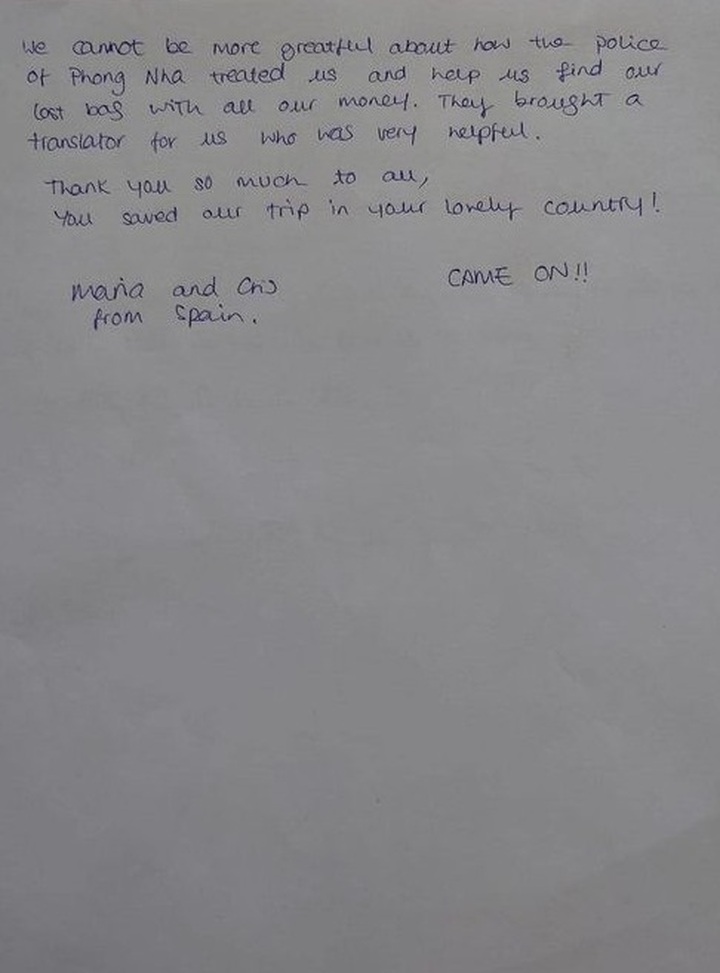 We cannot be more greatful about how the police
of Phong Nha treated us and help us find our
lost bag with all our money. They brought a
translator for us who was very helpful.
Thank you so much to all,
You saved our trip in your lovely country!
Maria and Cris
CAME ON!!
from Spain.